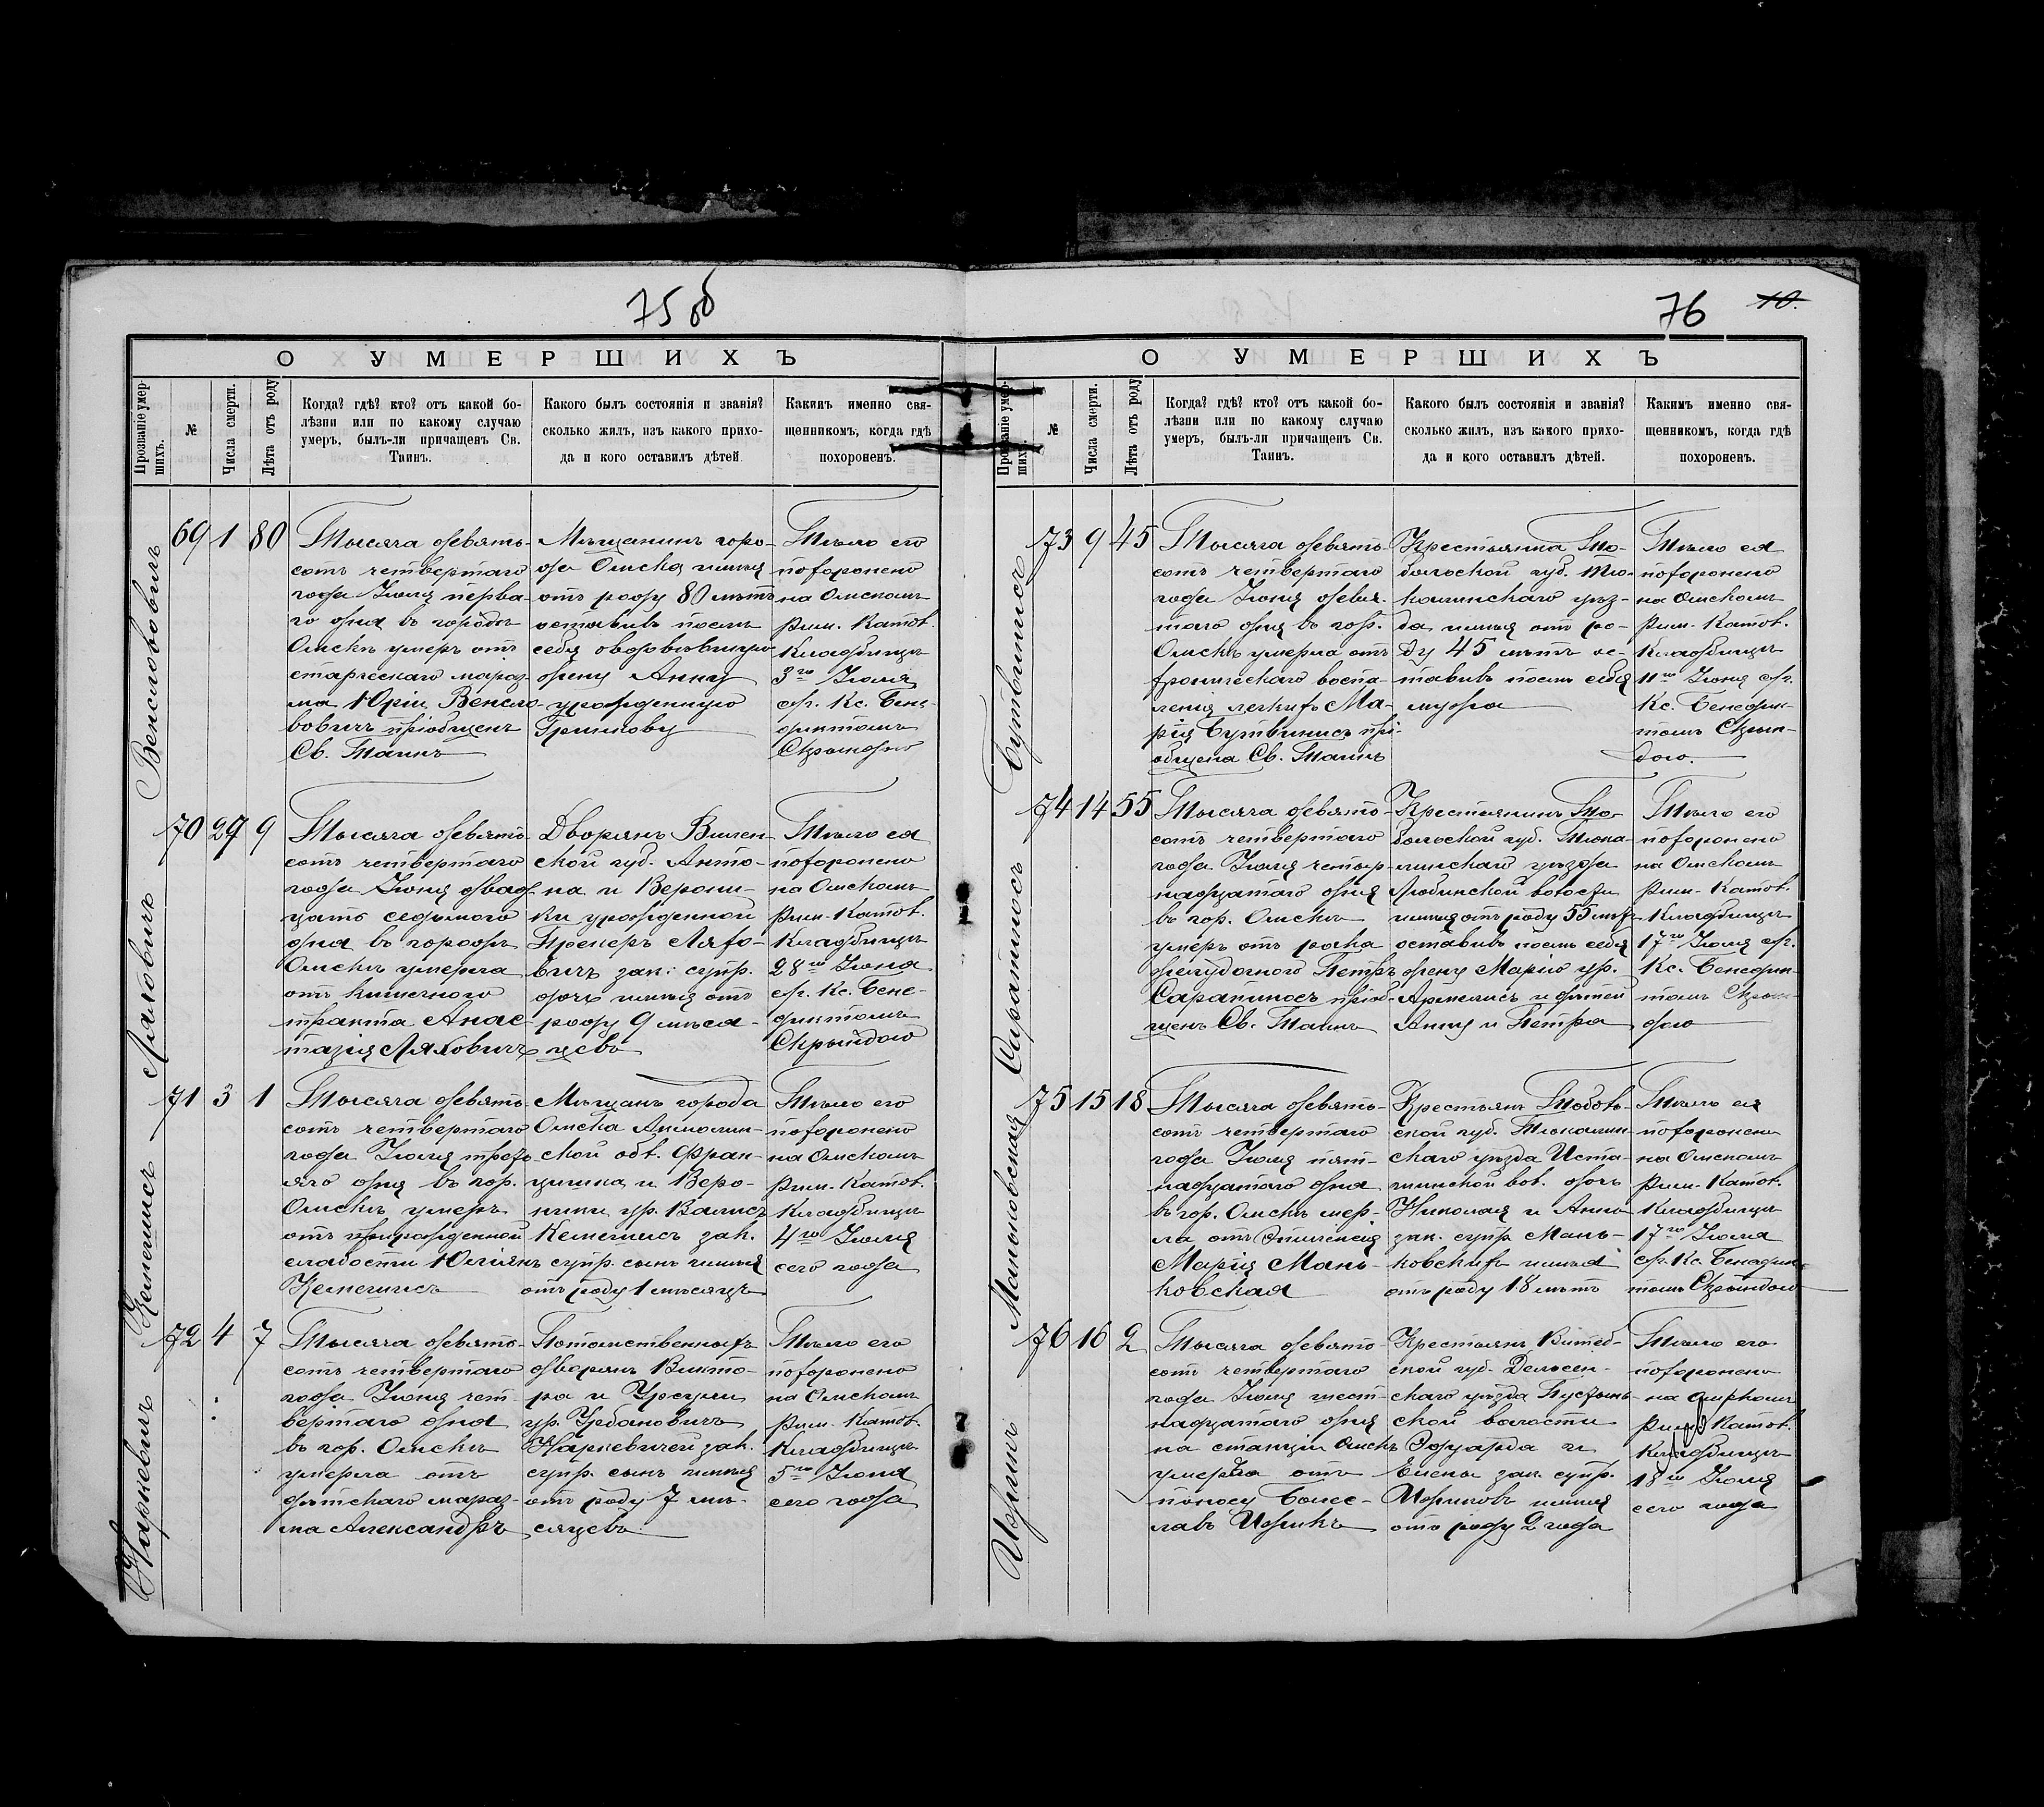 75 об
О УМЕРШИХЪ
Прозваніе умер-
шихъ.
№
Числа смерти.
Лѣта отъ роду
Когда? гдѣ? кто? отъ какой бо-
лѣзни или по какому случаю
умеръ, былъ-ли причащенъ Св.
Таинъ.
Какого былъ состоянія и званія?
сколько жилъ, изъ какого прихо-
да и кого оставилъ дѣтей
Какимъ именно свя-
щенникомъ, когда гдѣ
похороненъ.
Венслововичъ
69 1 80
Тысяча девять-
сотъ четвертаго
года Іюля перва-
го дня въ городѣ
Омскѣ умеръ отъ
старческаго мараз-
ма Юрій Венсло-
вовичъ пріобщенъ
Св. Таинъ
Мѣщанинъ горо-
да Омска имѣя
отъ роду 80 лѣтъ
оставивъ послѣ
себя овдовѣвшую
жену Анну
урожденную
Гринкову
Тѣло его
похоронено
на Омскомъ
Рим. Катол.
Кладбищѣ
3го Іюля
с/г. Кс. Бене-
диктомъ
Скрындою
Ляховичъ
70 27 9
Тысяча девять-
сотъ четвертаго
года Іюня двад-
цать седьмого
дня въ городѣ
Омскѣ умерла
отъ кишечного
тракта Анас-
тазія Ляховичъ
Дворянъ Вилен-
ской губ. Анто-
на и Верони-
ки урожденной
Прекеръ Ляхо-
вичъ зак: супр.
дочь имѣя отъ
роду 9 мѣся-
цевъ
Тѣло ея
похоронено
на Омскомъ
Рим. Катол.
Кладбищѣ
28го Іюня
с/г. Кс. Бене-
диктомъ
Скрындою
Кемешисъ
71 3 1
Тысяча девять-
сотъ четвертаго
года Іюля треть-
яго дня въ гор.
Омскѣ умеръ
отъ прирожденной
слабости Юліянъ
Кемешисъ
Мѣщанъ города
Омска Акмолин-
ской обл. Фран-
цишка и Веро-
ники ур. Валисъ
Кемешисъ зак.
супр. сынъ имѣя
отъ роду 1 мѣсяцъ
Тѣло его
похоронено
на Омскомъ
Рим. Катол.
Кладбищѣ
4го Іюля
сего года
Наркевичъ
72 4 7
Тысяча девять-
сотъ четвертаго
года Іюня чет-
вертаго дня
въ гор. Омскѣ
умерла отъ
дѣтскаго мараз-
ма Александръ
Потомственныхъ
дворянъ Викто-
ра и Урсули
ур. Урбановичъ
Наркевичей зак.
супр. сынъ имѣя
отъ роду 7 мѣ-
сяцевъ
Тѣло его
похоронено
на Омскомъ
Рим. Катол.
Кладбищѣ
5го Іюня
сего года
76 10.
О УМЕРШИХЪ
Прозваніе умер-
шихъ.
№
Числа смерти.
Лѣта отъ роду
Когда? гдѣ? кто? отъ какой бо-
лѣзни или по какому случаю
умеръ, былъ-ли причащенъ Св.
Таинъ.
Какого былъ состоянія и званія?
сколько жилъ, изъ какого прихо-
да и кого оставилъ дѣтей.
Какимъ именно свя-
щенникомъ, когда гдѣ
похороненъ.
Бутвинисъ
73 9 45
Тысяча девять-
сотъ четвертаго
года Іюня девя-
таго дня въ гор.
Омскѣ умерла отъ
хроническаго воспа-
ленія легкихъ Ма-
рія Бутвинисъ прі-
общена Св. Таинъ
Крестьянка То-
больской губ. Тю-
калинскаго уѣз-
да имѣя отъ ро-
ду 45 лѣтъ ос-
тавивъ послѣ себя
мужа
Тѣло ея
похоронено
на Омскомъ
Рим. Катол.
Кладбищѣ
11го Іюня с/г.
Кс. Бенедик-
томъ Скрын-
дою.
Сарапинасъ
74 14 55
Тысяча девять-
сотъ четвертаго
года Іюля четыр-
надцатаго дня
въ гор. Омскѣ
умеръ отъ рака
желудочного Петръ
Сарапинасъ пріоб-
щенъ Св. Таинъ
Крестьянинъ То-
больской губ. Тюка-
линскаго уѣзда
Любинской волости
имѣя отъ роду 55 лѣтъ
оставивъ послѣ себя
жену Марію ур.
и дѣтей
Анну и Петра
Тѣло его
похоронено
на Омскомъ
Рим. Катол.
Кладбищѣ
17го Іюля с/г.
Кс. Бенедик-
томъ Скрын-
дою
Маньковская
75 15 18
Тысяча девять-
сотъ четвертаго
года Іюля пят-
надцатаго дня
въ гор. Омскѣ мер-
ла отъ Эпилепсіи
Марія Мань-
ковская
Крестьянъ Тоболь-
ской губ. Тюкалин-
скаго уѣзда
вол. дочь
Николая и Анны
зак. супр. Мань-
ковскихъ имѣя
отъ роду 18 лѣтъ
Тѣло ея
похоронено
на Омскомъ
Рим. Катол.
Кладбищѣ
17го Іюля
с/г. Кс. Бенедик-
томъ Скрындою
Ицикъ
76 16 2
Тысяча девять-
сотъ четвертаго
года Іюля шест-
надцатаго дня
на станціи Омскъ
умерла отъ
поносу Болес-
лавъ
Крестьянъ Витеб-
ской губ.
скаго уѣзда
ской волости
Эдуарда и
Елены зак. супр.
имѣя
отъ роду 2 года
Тѣло его
похоронено
на Омскомъ
Рим. Катол.
Кладбищѣ
18го Іюля
сего года